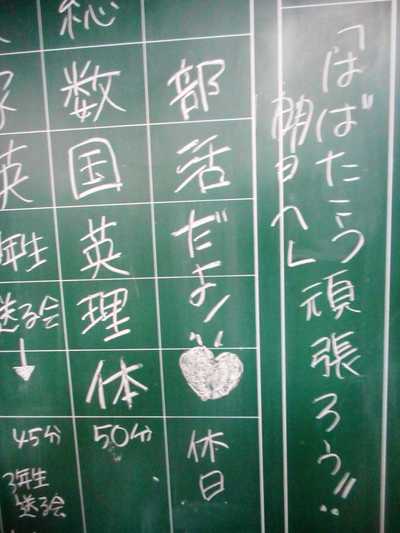 「はばたこう
朝日へ」
頑張ろう!!
部活だよ!!
休日
総
数
国
英
理
体
50分
英
年生
送る会
↓
45分
3年生
送る会